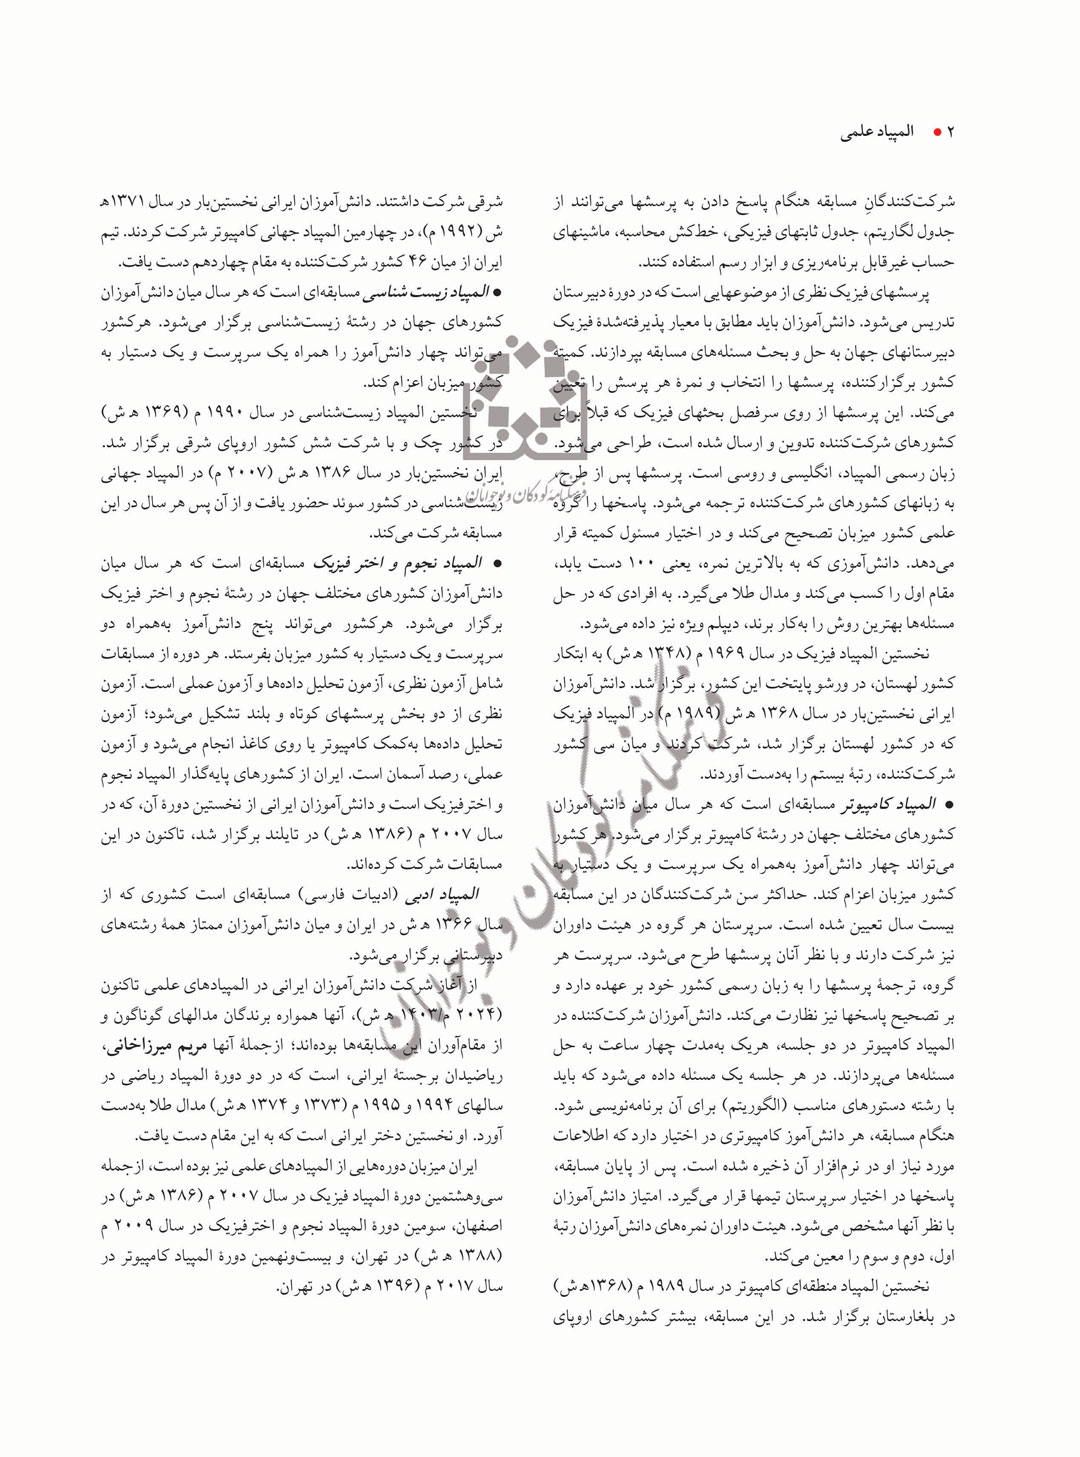 ۲ ● المپیاد علمی
شرکت‌کنندگانِ مسابقه هنگام پاسخ دادن به پرسشها می‌توانند از
جدول لگاریتم، جدول ثابتهای فیزیکی، خط‌کش محاسبه، ماشینهای
حساب غیرقابل برنامه‌ریزی و ابزار رسم استفاده کنند.
پرسشهای فیزیک نظری از موضوعهایی است که در دورهٔ دبیرستان
تدریس می‌شود. دانش‌آموزان باید مطابق با معیار پذیرفته‌شدهٔ فیزیک
دبیرستانهای جهان به حل و بحث مسئله‌های مسابقه بپردازند. کمیتهٔ
کشور برگزارکننده، پرسشها را انتخاب و نمرهٔ هر پرسش را تعیین
می‌کند. این پرسشها از روی سرفصل بحثهای فیزیک که قبلاً برای
کشورهای شرکت‌کننده تدوین و ارسال شده است، طراحی می‌شود.
زبان رسمی المپیاد، انگلیسی و روسی است. پرسشها پس از طرح،
به زبانهای کشورهای شرکت‌کننده ترجمه می‌شود. پاسخها را گروه
علمی کشور میزبان تصحیح می‌کند و در اختیار مسئول کمیته قرار
می‌دهد. دانش‌آموزی که به بالاترین نمره، یعنی ۱۰۰ دست یابد،
مقام اول را کسب می‌کند و مدال طلا می‌گیرد. به افرادی که در حل
مسئله‌ها بهترین روش را به‌کار برند، دیپلم ویژه نیز داده می‌شود.
نخستین المپیاد فیزیک در سال ۱۹۶۹ م (۱۳۴۸ ه‍ ش) به ابتکار
کشور لهستان، در ورشو پایتخت این کشور، برگزار شد. دانش‌آموزان
ایرانی نخستین‌بار در سال ۱۳۶۸ ه‍ ش (۱۹۸۹ م) در المپیاد فیزیک
که در کشور لهستان برگزار شد، شرکت کردند و میان سی کشور
شرکت‌کننده، رتبهٔ بیستم را به‌دست آوردند.
● المپیاد کامپیوتر مسابقه‌ای است که هر سال میان دانش‌آموزان
کشورهای مختلف جهان در رشتهٔ کامپیوتر برگزار می‌شود. هر کشور
می‌تواند چهار دانش‌آموز به‌همراه یک سرپرست و یک دستیار به
کشور میزبان اعزام کند. حداکثر سن شرکت‌کنندگان در این مسابقه
بیست سال تعیین شده است. سرپرستان هر گروه در هیئت داوران
نیز شرکت دارند و با نظر آنان پرسشها طرح می‌شود. سرپرست هر
گروه، ترجمهٔ پرسشها را به زبان رسمی کشور خود بر عهده دارد و
بر تصحیح پاسخها نیز نظارت می‌کند. دانش‌آموزان شرکت‌کننده در
المپیاد کامپیوتر در دو جلسه، هریک به‌مدت چهار ساعت به حل
مسئله‌ها می‌پردازند. در هر جلسه یک مسئله داده می‌شود که باید
با رشته دستورهای مناسب (الگوریتم) برای آن برنامه‌نویسی شود.
هنگام مسابقه، هر دانش‌آموز کامپیوتری در اختیار دارد که اطلاعات
مورد نیاز او در نرم‌افزار آن ذخیره شده است. پس از پایان مسابقه،
پاسخها در اختیار سرپرستان تیمها قرار می‌گیرد. امتیاز دانش‌آموزان
با نظر آنها مشخص می‌شود. هیئت داوران نمره‌های دانش‌آموزان رتبهٔ
اول، دوم و سوم را معین می‌کند.
نخستین المپیاد منطقه‌ای کامپیوتر در سال ۱۹۸۹ م (۱۳۶۸ه‍ ش)
در بلغارستان برگزار شد. در این مسابقه، بیشتر کشورهای اروپای
شرقی شرکت داشتند. دانش‌آموزان ایرانی نخستین‌بار در سال ۱۳۷۱ه‍
ش (۱۹۹۲ م)، در چهارمین المپیاد جهانی کامپیوتر شرکت کردند. تیم
ایران از میان ۴۶ کشور شرکت‌کننده به مقام چهاردهم دست یافت.
● المپیاد زیست شناسی مسابقه‌ای است که هر سال میان دانش‌آموزان
کشورهای جهان در رشتهٔ زیست‌شناسی برگزار می‌شود. هرکشور
می‌تواند چهار دانش‌آموز را همراه یک سرپرست و یک دستیار به
کشور میزبان اعزام کند.
نخستین المپیاد زیست‌شناسی در سال ۱۹۹۰ م (۱۳۶۹ ه‍ ش)
در کشور چک و با شرکت شش کشور اروپای شرقی برگزار شد.
ایران نخستین‌بار در سال ۱۳۸۶ ه‍ ش (۲۰۰۷ م) در المپیاد جهانی
زیست‌شناسی در کشور سوئد حضور یافت و از آن پس هر سال در این
مسابقه شرکت می‌کند.
● المپیاد نجوم و اختر فیزیک مسابقه‌ای است که هر سال میان
دانش‌آموزان کشورهای مختلف جهان در رشتهٔ نجوم و اختر فیزیک
برگزار می‌شود. هرکشور می‌تواند پنج دانش‌آموز به‌همراه دو
سرپرست و یک دستیار به کشور میزبان بفرستد. هر دوره از مسابقات
شامل آزمون نظری، آزمون تحلیل داده‌ها و آزمون عملی است. آزمون
نظری از دو بخش پرسشهای کوتاه و بلند تشکیل می‌شود؛ آزمون
تحلیل داده‌ها به‌کمک کامپیوتر یا روی کاغذ انجام می‌شود و آزمون
عملی، رصد آسمان است. ایران از کشورهای پایه‌گذار المپیاد نجوم
و اخترفیزیک است و دانش‌آموزان ایرانی از نخستین دورهٔ آن، که در
سال ۲۰۰۷ م (۱۳۸۶ ه‍ ش) در تایلند برگزار شد، تاکنون در این
مسابقات شرکت کرده‌اند.
المپیاد ادبی (ادبیات فارسی) مسابقه‌ای است کشوری که از
سال ۱۳۶۶ ه‍ ش در ایران و میان دانش‌آموزان ممتاز همهٔ رشته‌های
دبیرستانی برگزار می‌شود.
از آغاز شرکت دانش‌آموزان ایرانی در المپیادهای علمی تاکنون
(۲۰۲۴ م/۱۴۰۳ ه‍ ش)، آنها همواره برندگان مدالهای گوناگون و
از مقام‌آوران این مسابقه‌ها بوده‌اند؛ ازجملهٔ آنها مریم میرزاخانی،
ریاضیدان برجستهٔ ایرانی، است که در دو دورهٔ المپیاد ریاضی در
سالهای ۱۹۹۴ و ۱۹۹۵ م (۱۳۷۳ و ۱۳۷۴ ه‍ ش) مدال طلا به‌دست
آورد. او نخستین دختر ایرانی است که به این مقام دست یافت.
ایران میزبان دوره‌هایی از المپیادهای علمی نیز بوده است، ازجمله
سی‌وهشتمین دورهٔ المپیاد فیزیک در سال ۲۰۰۷ م (۱۳۸۶ ه‍ ش) در
اصفهان، سومین دورهٔ المپیاد نجوم و اخترفیزیک در سال ۲۰۰۹ م
(۱۳۸۸ ه‍ ش) در تهران، و بیست‌ونهمین دورهٔ المپیاد کامپیوتر در
سال ۲۰۱۷ م (۱۳۹۶ ه‍ ش) در تهران.
فرهنگنامه کودکان و نوجوانان
فرهنگنامه کودکان و نوجوانان